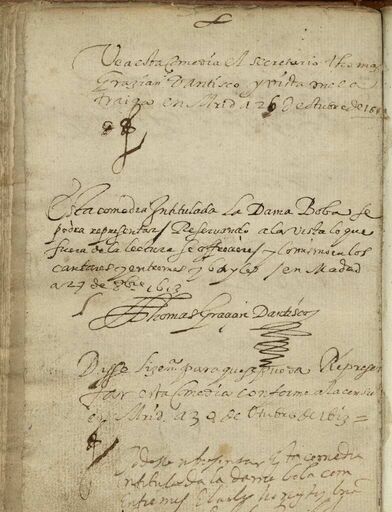 Vea esta Comedia el secretario thomas
Gracian Dantisco y vista me la
traiga en Mrid a 26 de otubre de 161
Esta comedia Intitulada La Dama Boba se
podra representar Reservando a la vista lo que
fuera de la lectura se offreciere y lo mismo en los
cantares y entremes y bayle / en Madrid
a 27 de 8bre 1613
Thomas Graçian Dantisco
para que pueda Represen
tar esta Comedia conforme a la censura
en Mrid a 30 de Otubre de 1613 =
Podese representar esta comedia
intitulada la dama boba con
entremes